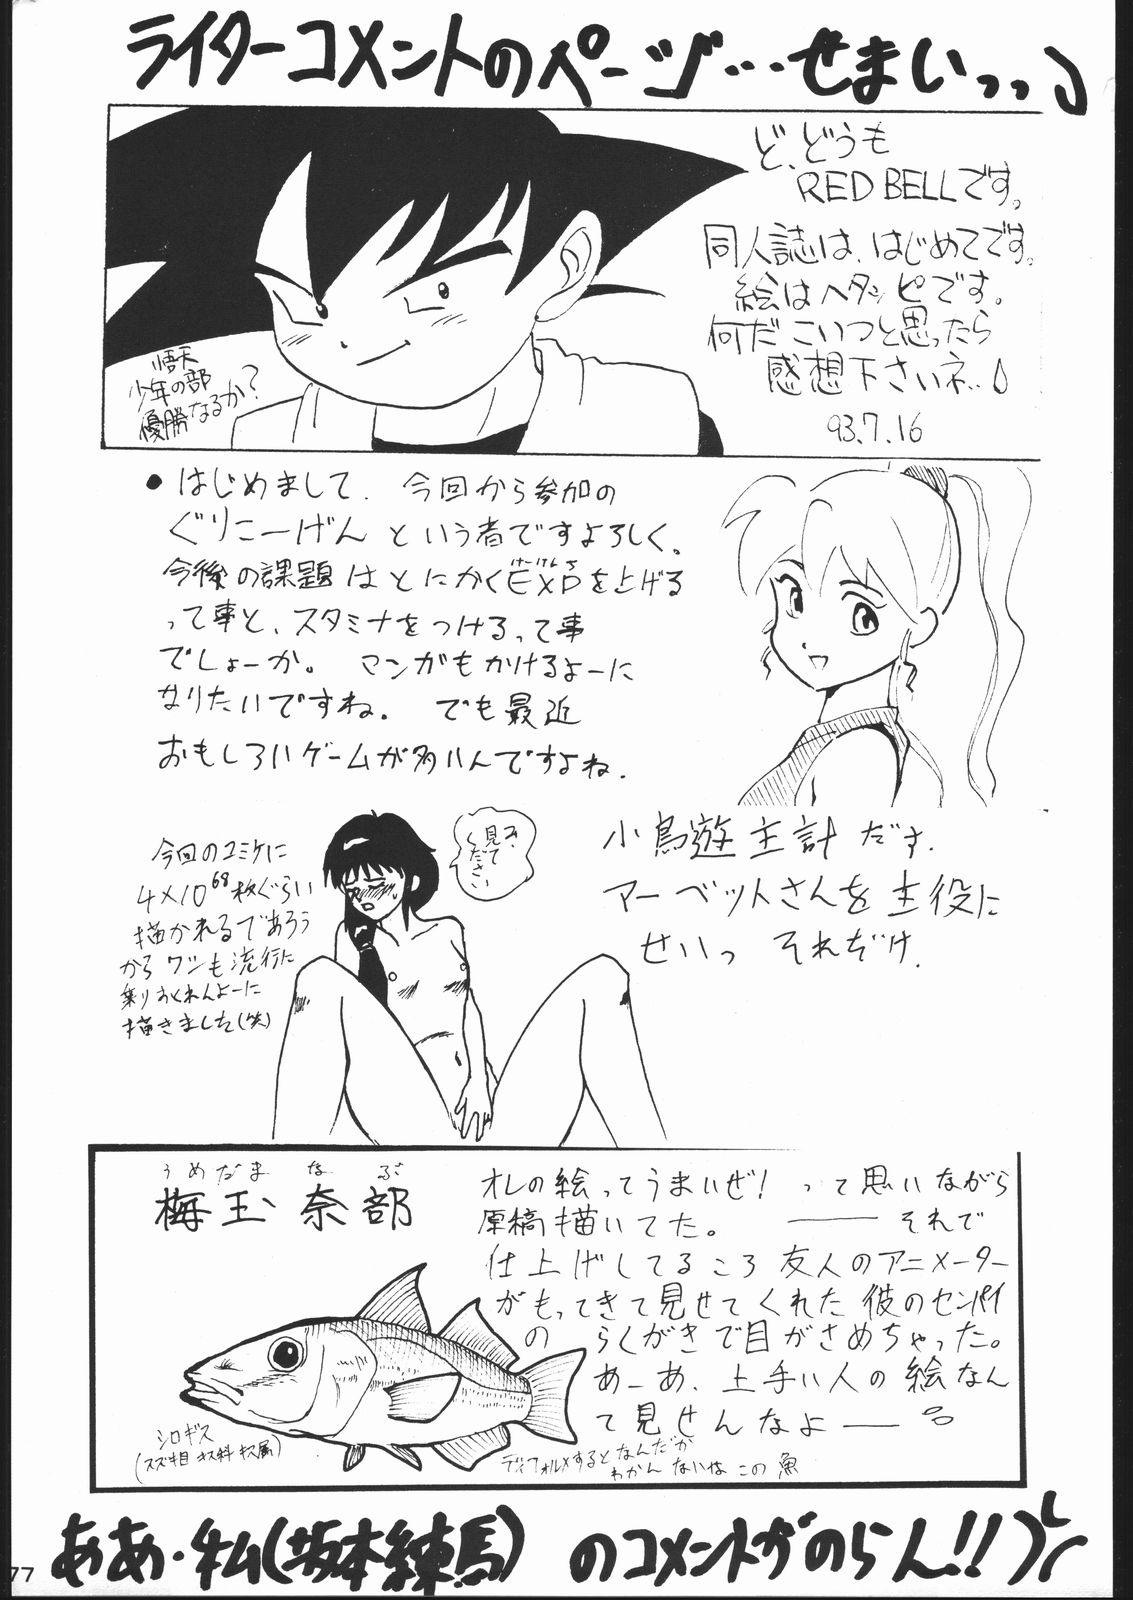 ライターコメントのページ…せまいっっ
ど、どうも
RED BELLです。
同人誌は、はじめてです。
絵はヘタッピです。
何だこいつと思ったら
感想下さいネ…
93.7.16
悟天
少年の部
優勝なるか？
●はじめまして、今回から参加の
ぐりこーげん という者ですよろしく。
今後の課題はとにかくEXPを上げる
って事と、スタミナをつけるって事
でしょーか。マンガもかけるよーに
なりたいですね。でも最近
おもしろいゲームが多いんですよね.
今回のコミケに
4×10⁶⁸枚ぐらい
描かれるであろう
からワシも流行に
乗りおくれんよーに
描きました(笑)
み、
見て
ください
小鳥遊主計 だす.
マーベットさんを主役に
せいっ それだけ.
うめだま なぶ
梅玉 奈部
オレの絵ってうまいぜ! って思いながら
原稿描いてた。――それで
仕上げしてるころ 友人のアニメーター
がもってきて見せてくれた 彼のセンパイ
の らくがきで目がさめちゃった。
あーあ、上手い人の絵なん
て見せんなよ――
シロギス
(スズキ目 キス科 キス属)
ディフォルメするとなんだか
わかんないな この魚
ああ・私(坂本練馬) のコメントがのらん!!
77